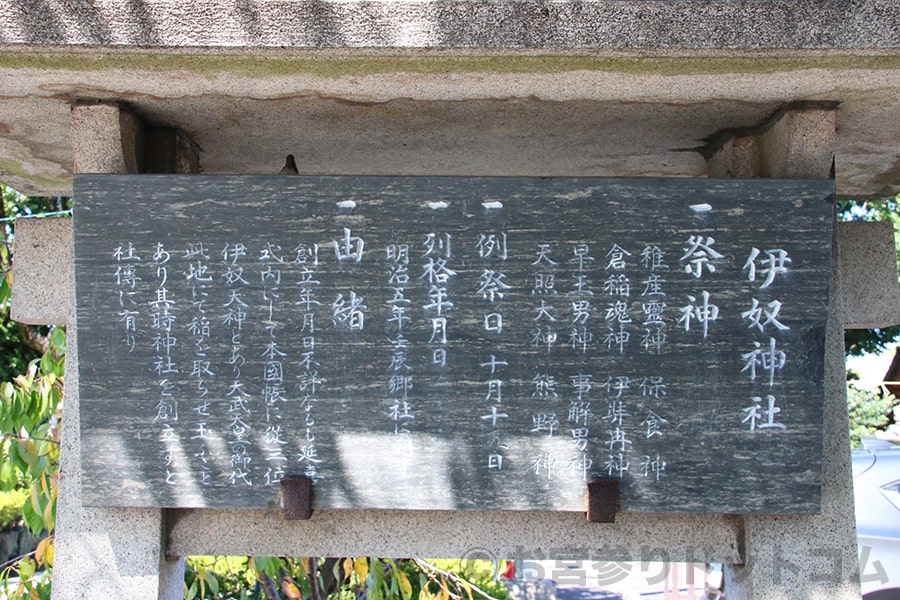 伊奴神社
一 祭神
稚産霊神 保食神
倉稲魂神 伊弉冉神
早玉男神 事解男神
天照大神 熊野神
一 例祭日 十月十 日
一 列格年月日
明治五年壬辰郷社に列す
一 由緒
創立年月日不詳なるも延喜
式内にして本國帳に従三位
伊奴大神とあり大武天皇の御代
此地して稲を取らせ玉ふこと
あり其時神社を創立すと
社傳に有り
©お宮参りドットコム